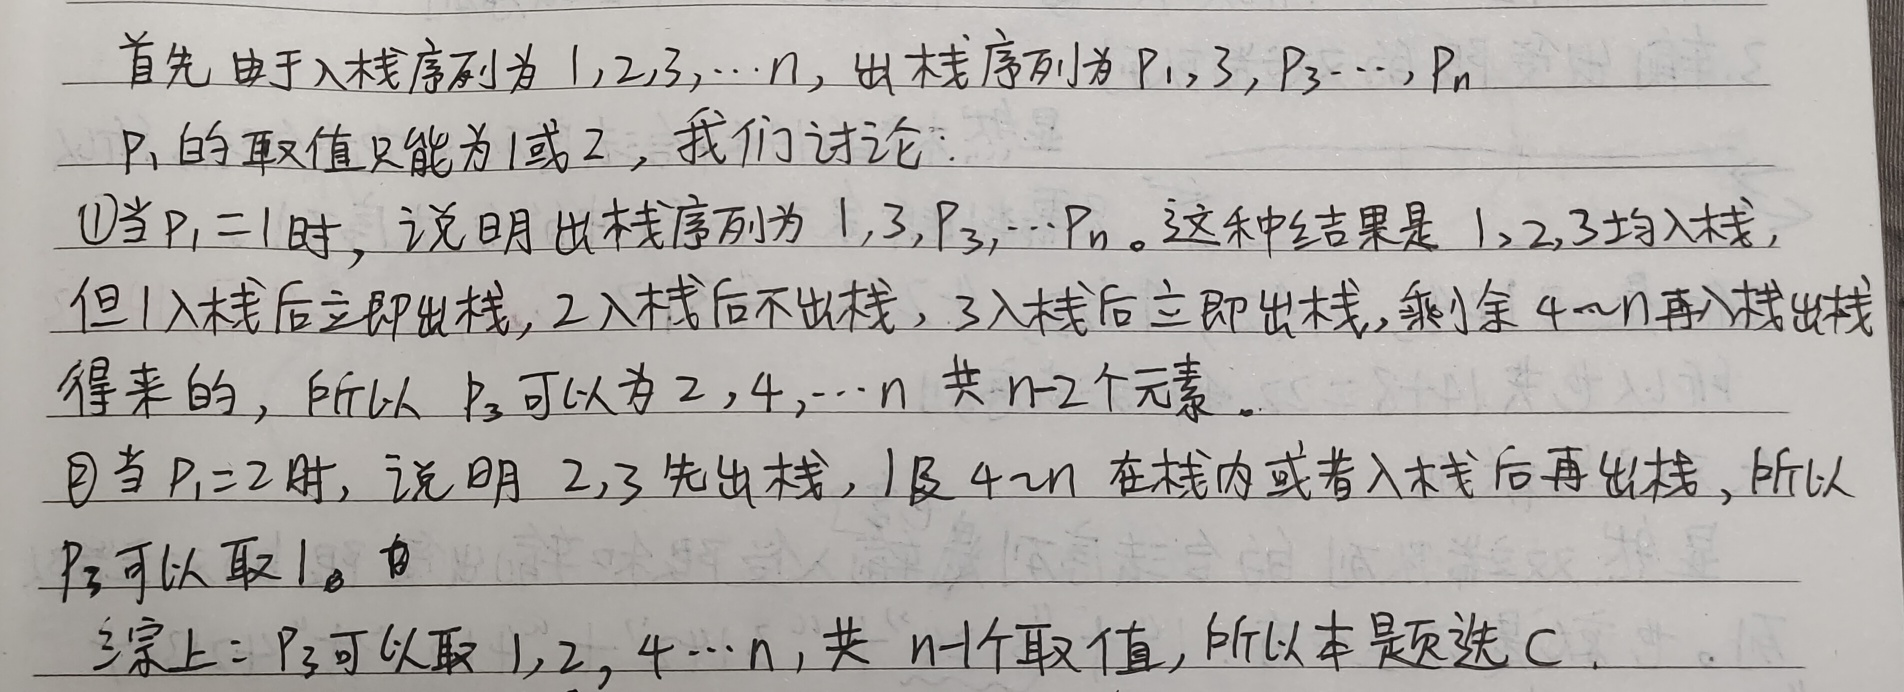 首先由于入栈序列为1,2,3,…n, 出栈序列为P₁,3,P₃…,Pₙ
P₁的取值只能为1或2,我们讨论:
①当P₁=1时,说明出栈序列为1,3,P₃,…Pₙ。这种结果是1,2,3均入栈,
但1入栈后立即出栈,2入栈后不出栈,3入栈后立即出栈,剩余4~n再入栈出栈
得来的,所以P₃可以为2,4,…n共n-2个元素。
②当P₁=2时,说明2,3先出栈,1及4~n在栈内或者入栈后再出栈,所以
P₃可以取1。
综上:P₃可以取1,2,4…n,共n-1个取值,所以本题选C.